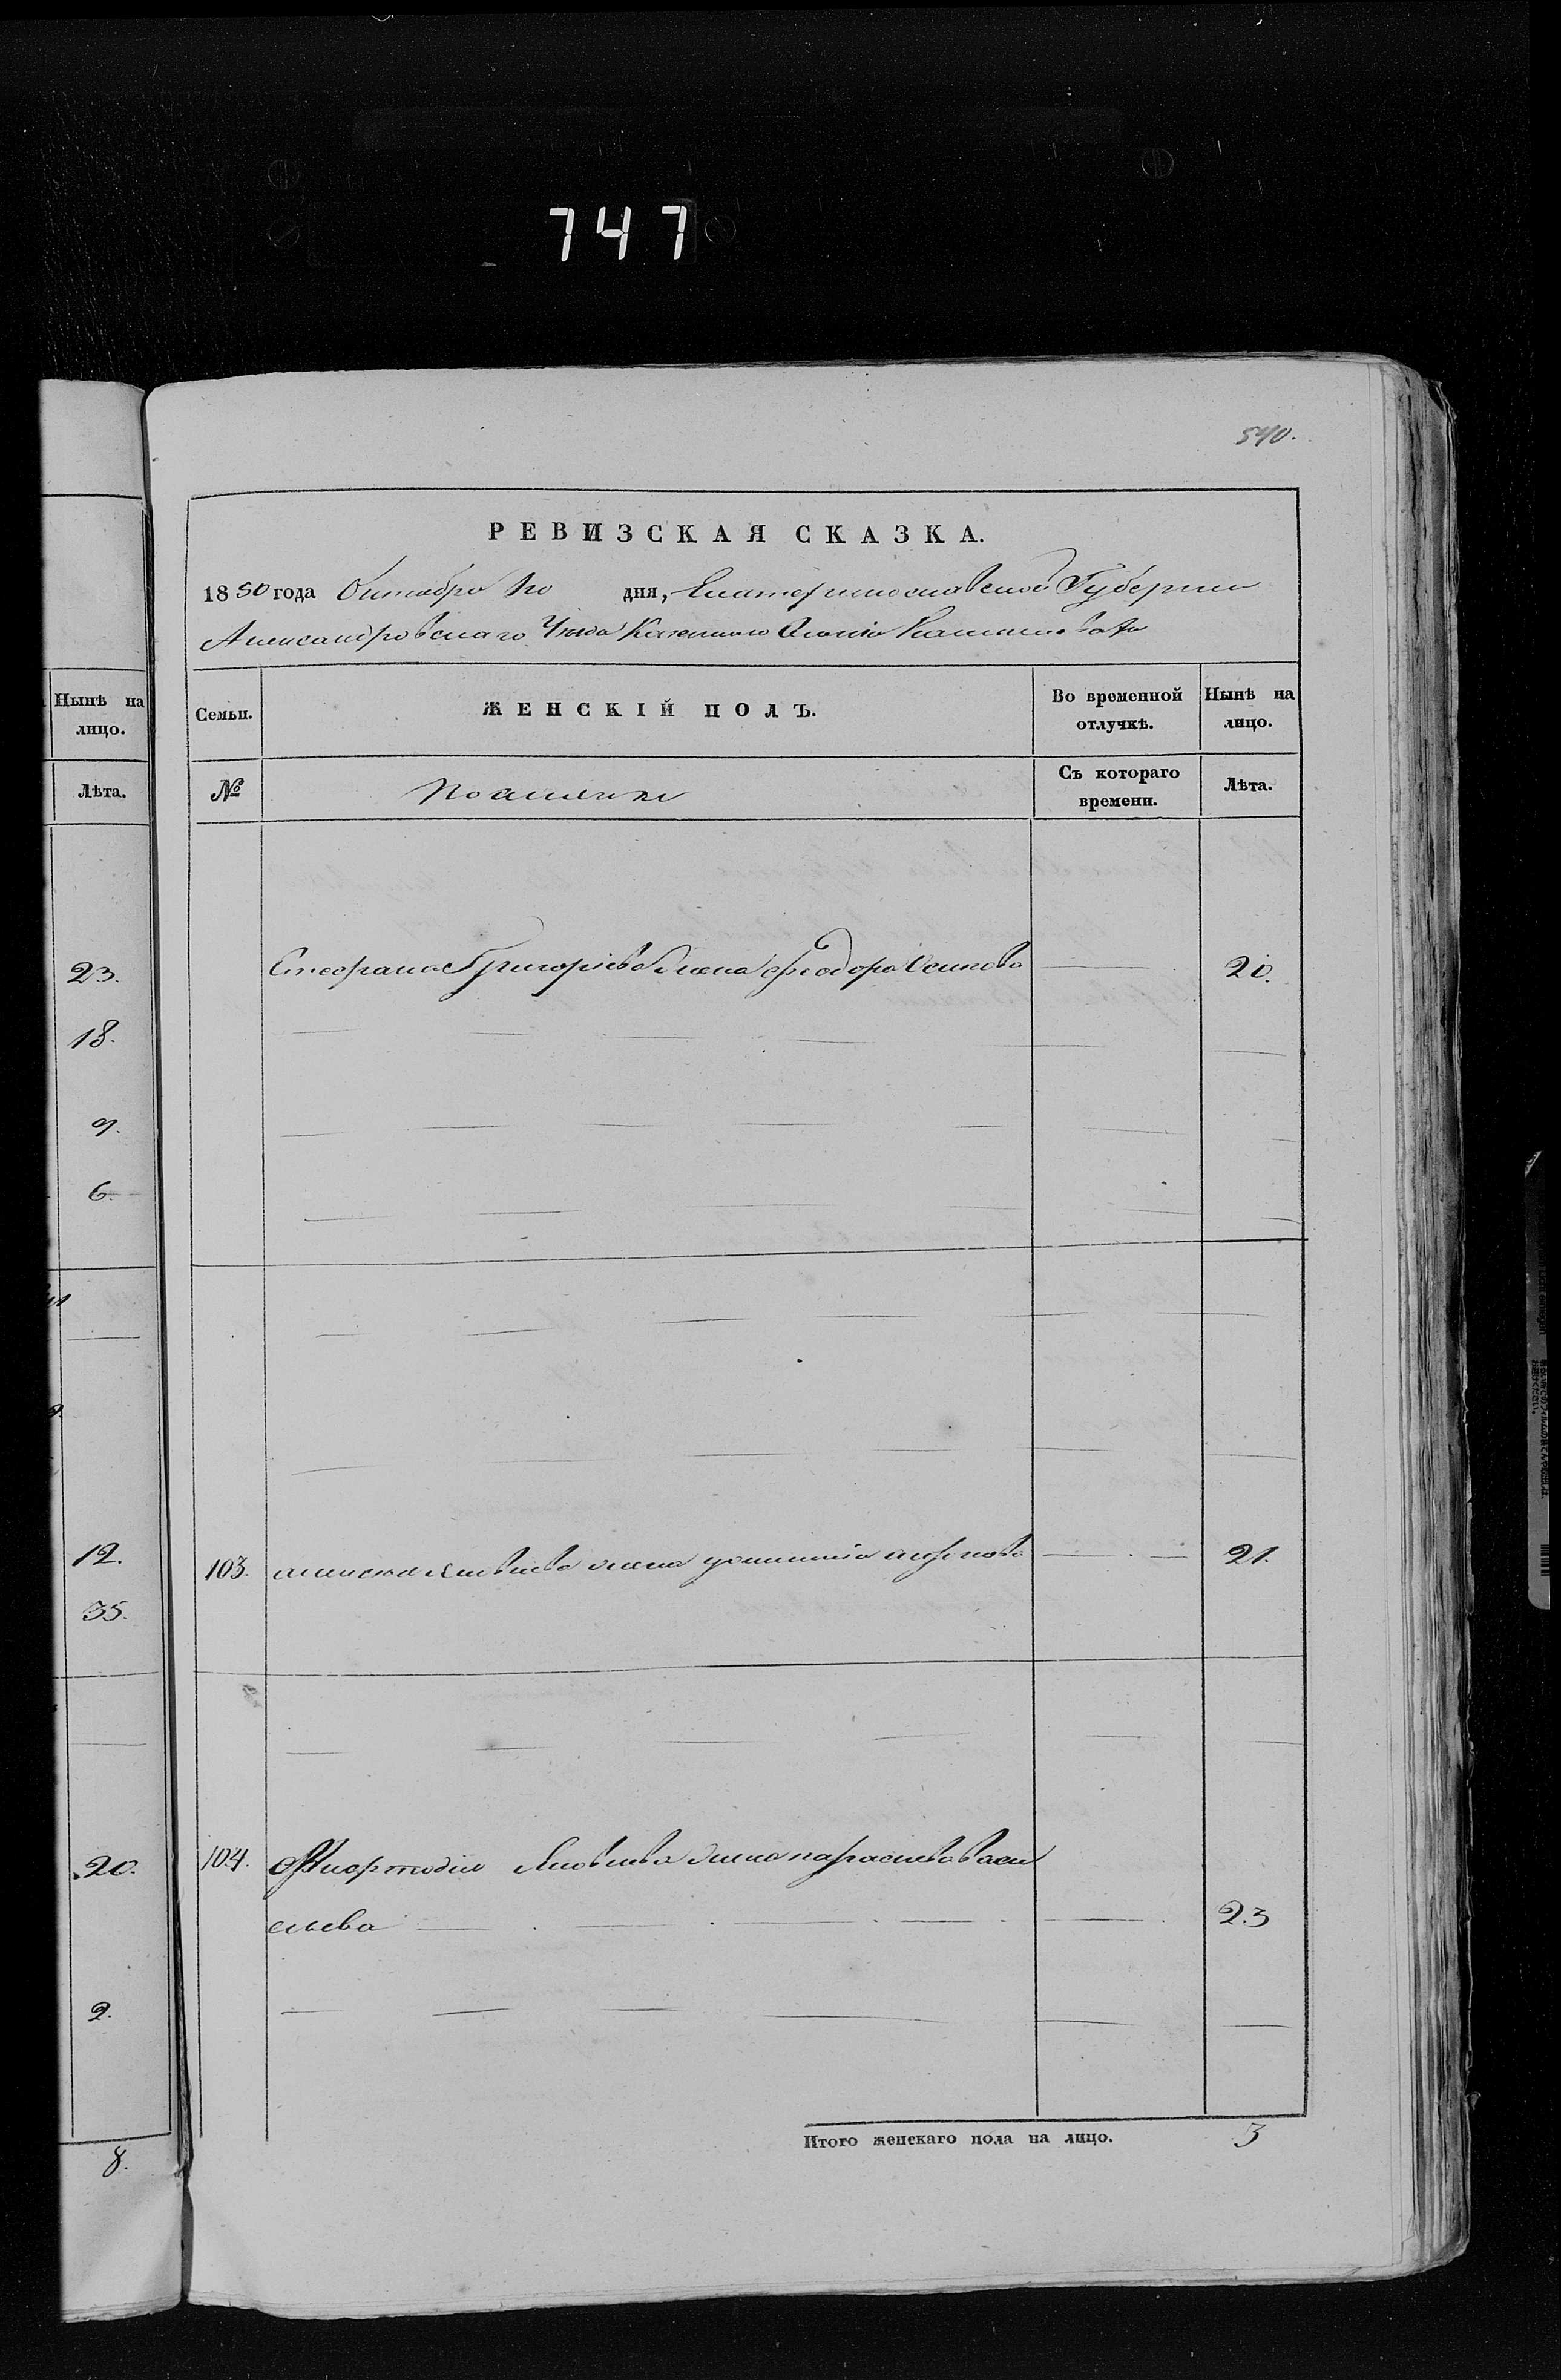 747
540.
РЕВИЗСКАЯ СКАЗКА.
1850 года Октября 20 дня, Екатеринославской Губернии
Александровскаго Уезда Казенного Селения
Нынѣ на лицо.
Лѣта.
23.
18.
9.
6.
12.
35.
20.
2.
8.
Семьи. ЖЕНСКІЙ ПОЛЪ. Во временной отлучкѣ. Нынѣ на лицо.
№ Съ котораго времени. Лѣта.
Стефана Григорьева жена Феодора Осипова 20.
103. жена 21.
104. Яковлева жена параскева васи
льева 23
Итого женскаго пола на лицо. 3